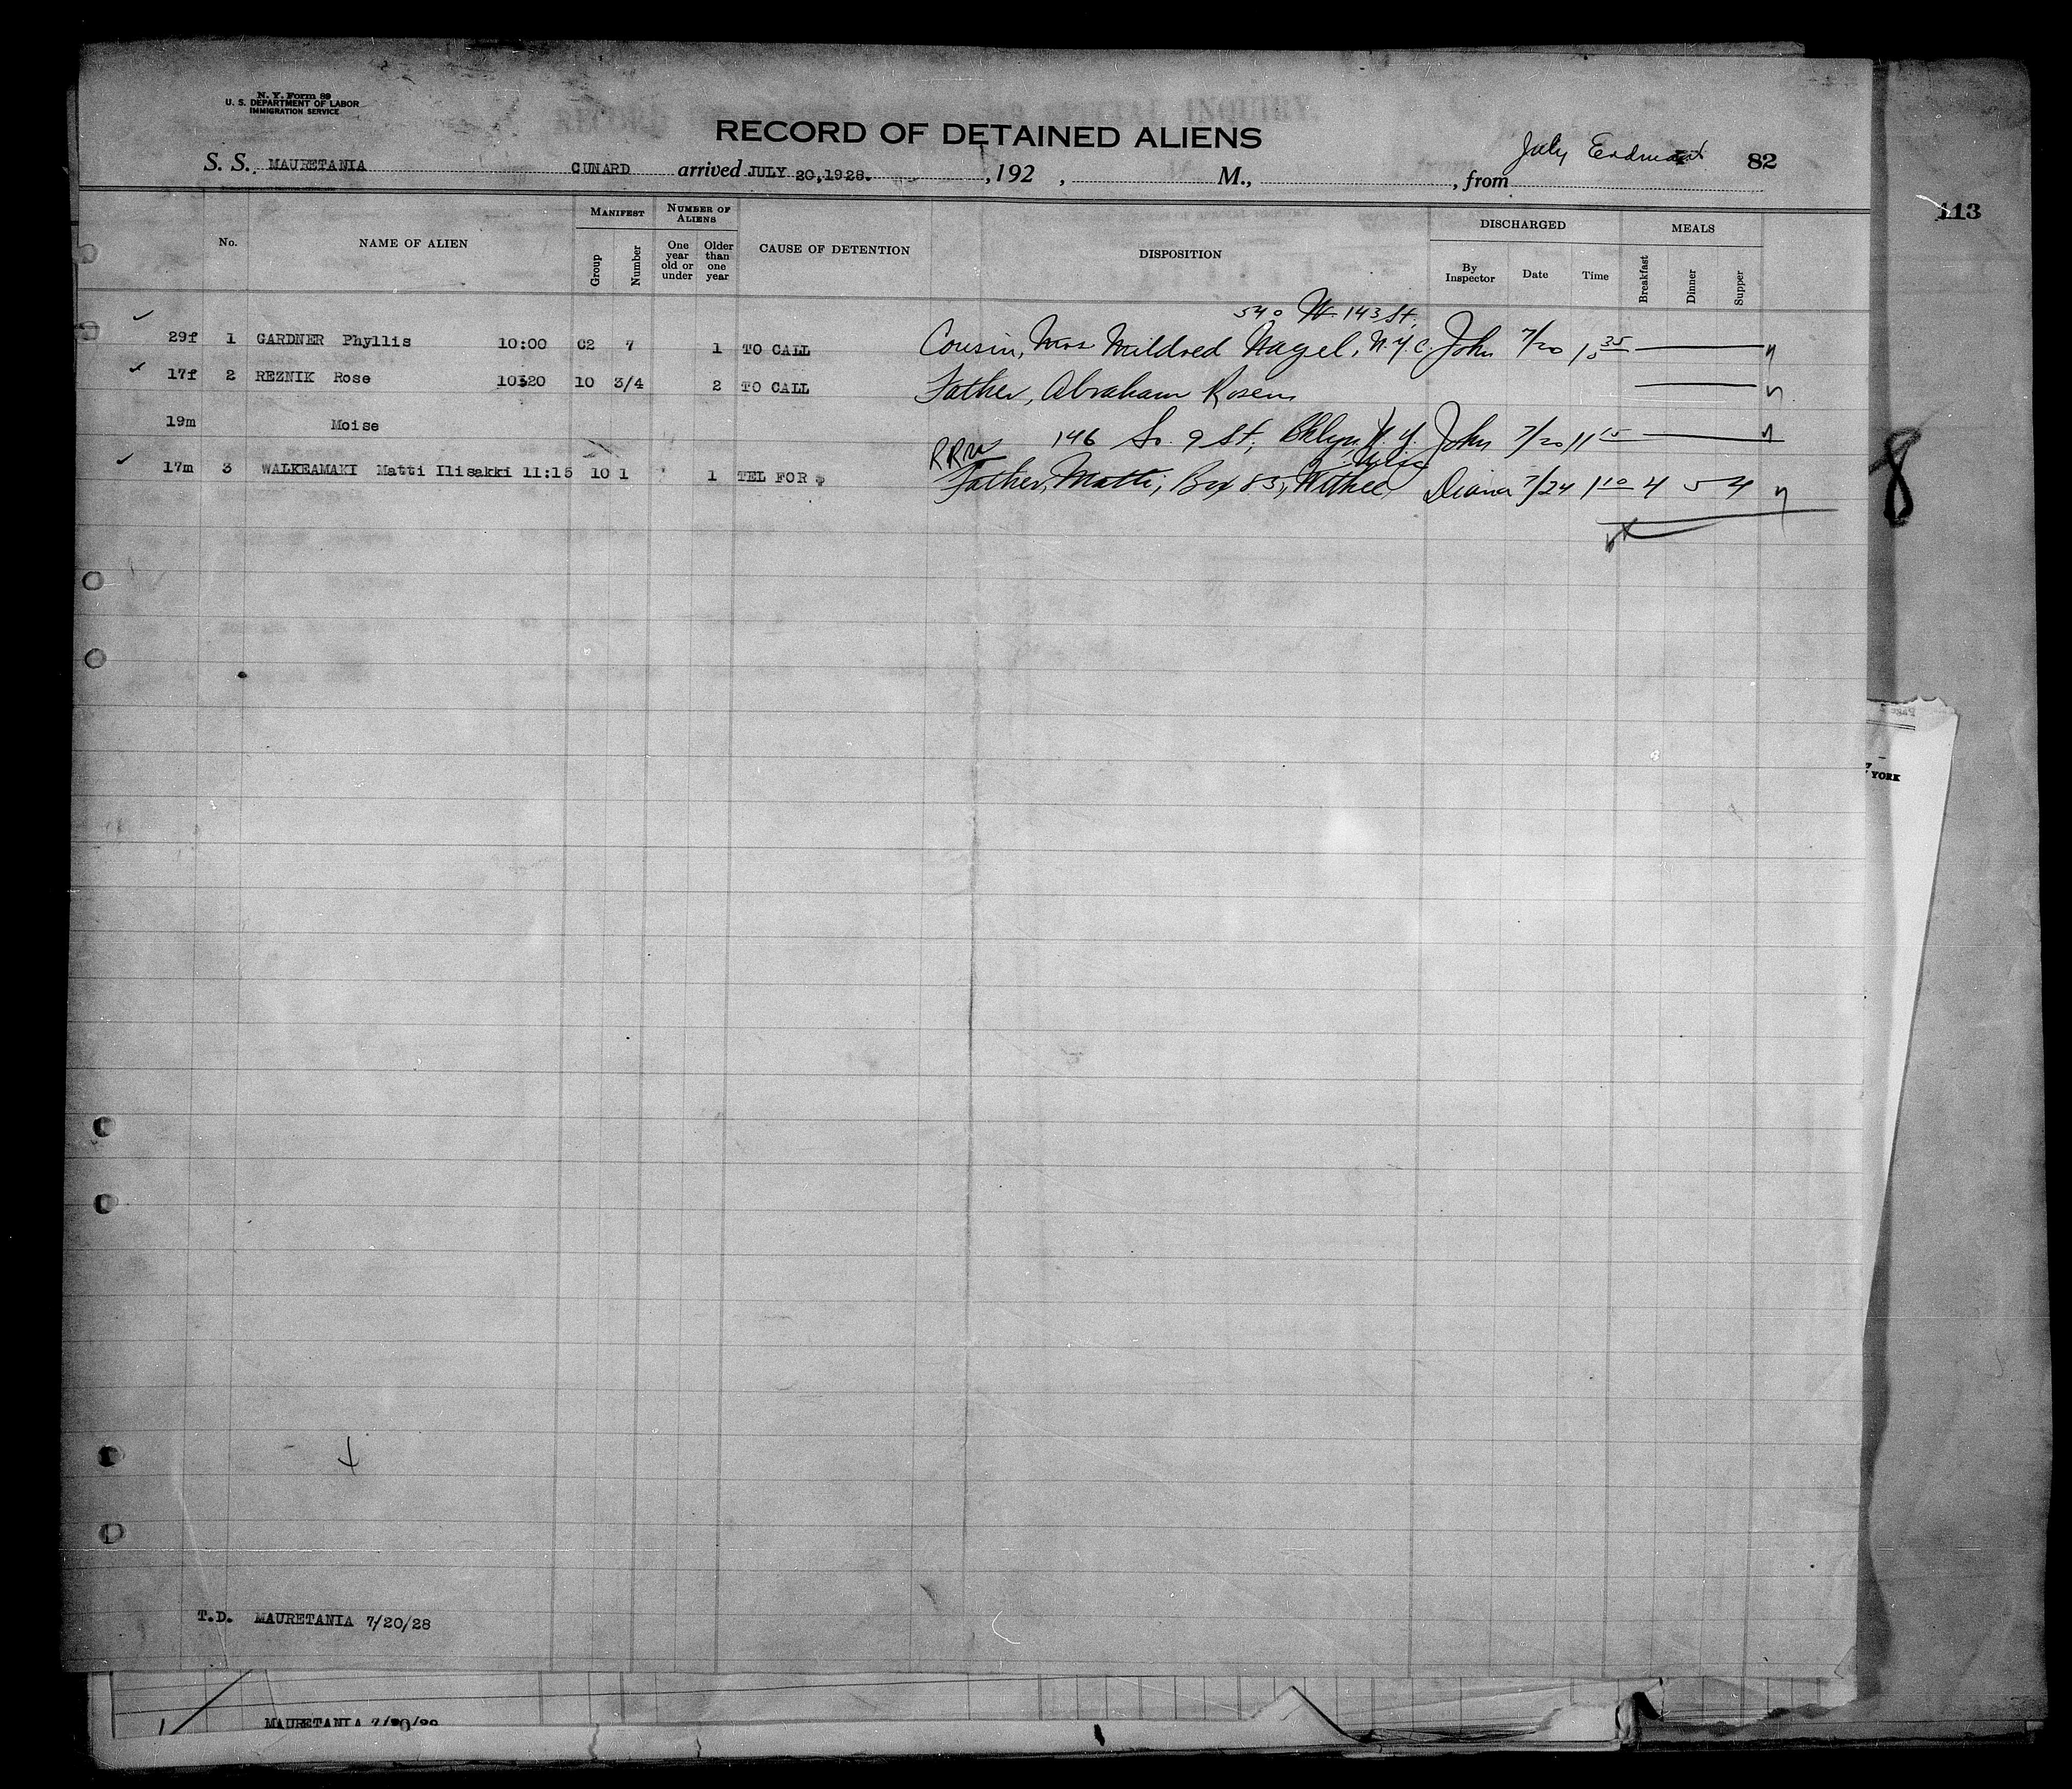 N. Y. Form 89
U. S. DEPARTMENT OF LABOR
IMMIGRATION SERVICE
RECORD OF DETAINED ALIENS
S. S. MAURETANIA CUNARD arrived JULY 20,1928. , 192 , M., , from July 82
113
No. NAME OF ALIEN MANIFEST Group Number NUMBER OF ALIENS One year old or under Older than one year CAUSE OF DETENTION DISPOSITION DISCHARGED By Inspector Date Time MEALS Breakfast Dinner Supper
540 W. 143 St,
29f 1 GARDNER Phyllis 10:00 C2 7 1 TO CALL Cousin, Mrs Mildred Nagel, N.Y.C. John 7/20 10 35
17f 2 REZNIK Rose 10320 10 3/4 2 TO CALL Father, Abraham Rosen
19m Moise 146 So. 9 St, Bklyn, N.Y. John 7/20 11 15
Wisc
17m 3 WALKEAMAKI Matti Ilisakki 11:15 10 1 1 TEL FOR $ Father, Matti, Box 83, Withee, Diana 7/24 1 10 4 5 4
8
YORK
T.D. MAURETANIA 7/20/28
MAURETANIA 7/20/28